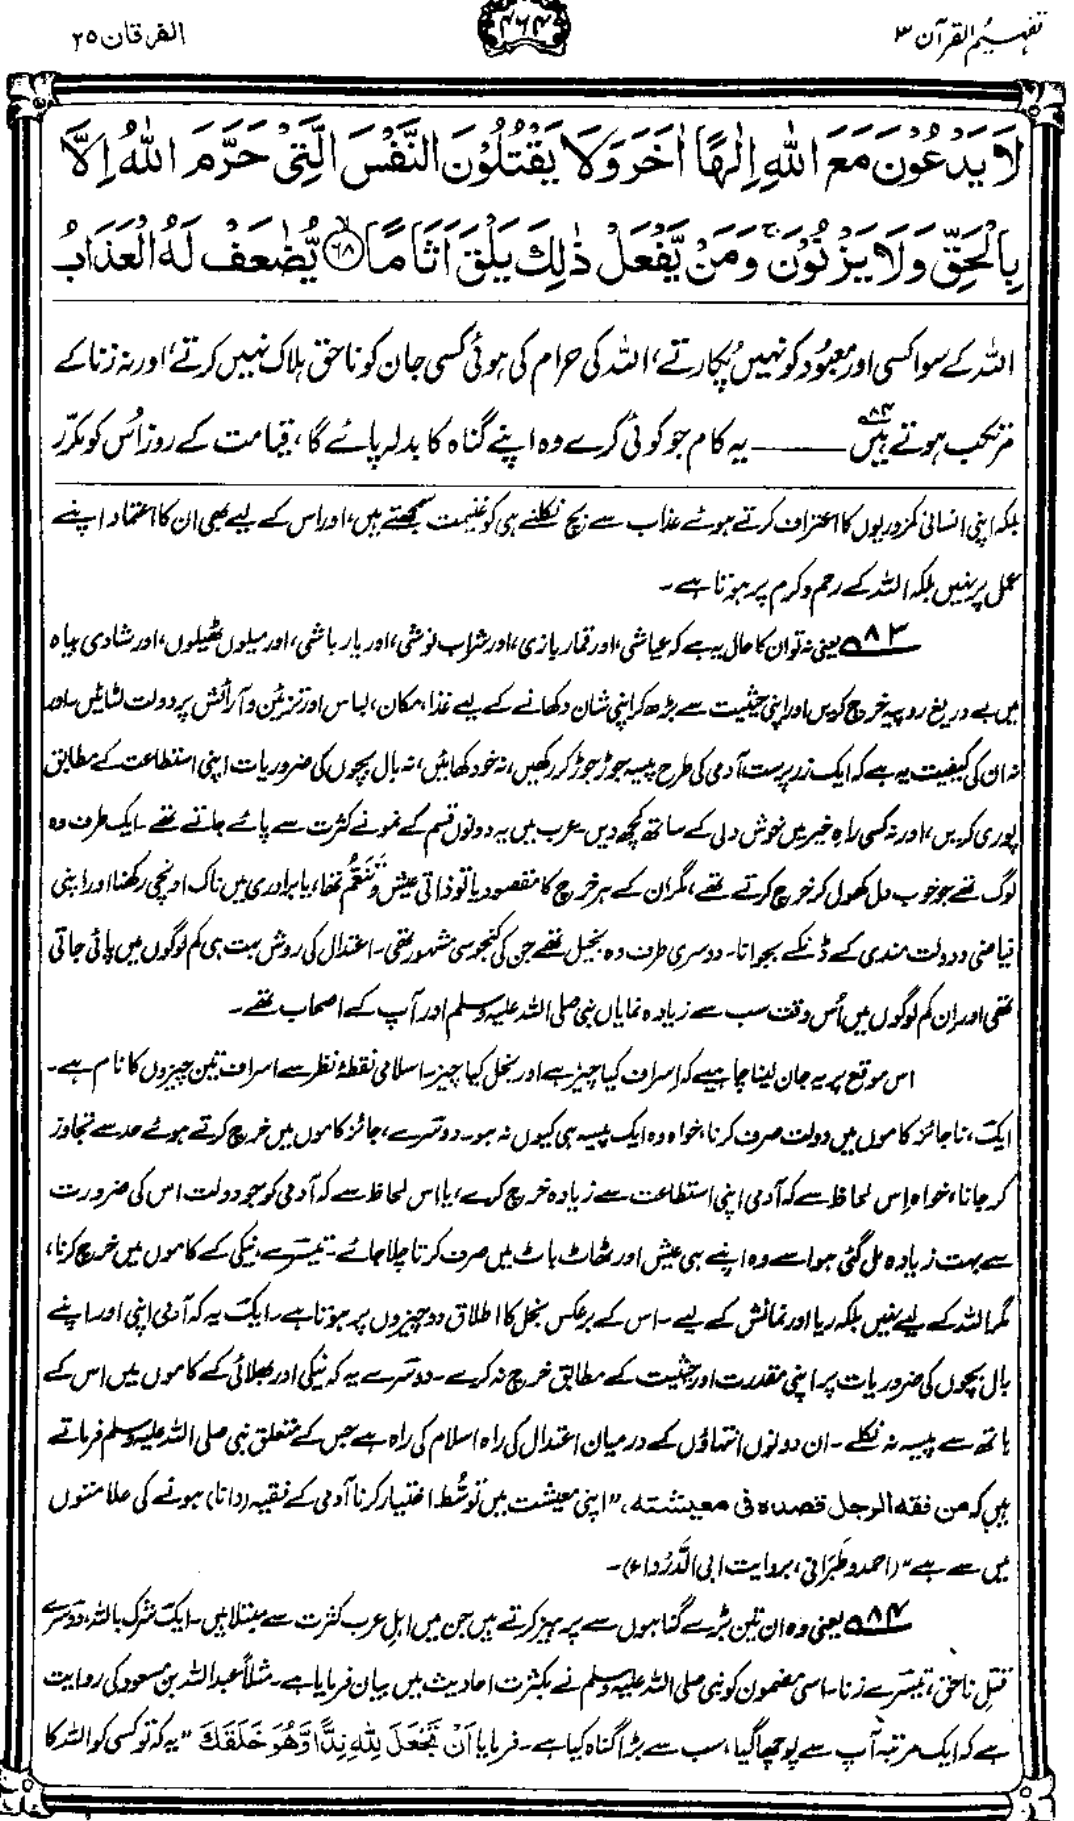 تفہیم القرآن ۳
۴۶۴
الفرقان ۲۵
لَا يَدْعُوْنَ مَعَ اللّٰهِ اِلٰهًا اٰخَرَ وَلَا يَقْتُلُوْنَ النَّفْسَ الَّتِىْ حَرَّمَ اللّٰهُ اِلَّا
بِالْحَقِّ وَلَا يَزْنُوْنَ ۚ وَمَنْ يَّفْعَلْ ذٰلِكَ يَلْقَ اَثَامًا ۙ‏﴿۶۸﴾ يُّضٰعَفْ لَهُ الْعَذَابُ
اللہ کے سوا کسی اور معبُود کو نہیں پُکارتے، اللہ کی حرام کی ہوئی کسی جان کو ناحق ہلاک نہیں کرتے، اور نہ زنا کے
مرتکب ہوتے ہیں ۸۴؎ ــــــــ یہ کام جو کوئی کرے وہ اپنے گناہ کا بدلہ پائے گا، قیامت کے روز اُس کو مکرّر
بلکہ اپنی انسانی کمزوریوں کا اعتراف کرتے ہوئے عذاب سے بچ نکلنے ہی کو غنیمت سمجھتے ہیں، اور اس کے لیے بھی ان کا اعتماد اپنے
عمل پر نہیں بلکہ اللہ کے رحم و کرم پر ہوتا ہے۔
۸۳؎ یعنی نہ تو ان کا حال یہ ہے کہ عیاشی، اور قمار بازی، اور شراب نوشی، اور یار باشی، اور میلوں ٹھیلوں، اور شادی بیاہ
میں بے دریغ روپیہ خرچ کریں اور اپنی حیثیت سے بڑھ کر اپنی شان دکھانے کے لیے غذا، مکان، لباس اور تزئین و آرائش پر دولت لٹائیں۔ اور
نہ ان کی کیفیت یہ ہے کہ ایک زر پرست آدمی کی طرح پیسہ جوڑ جوڑ کر رکھیں، نہ خود کھائیں، نہ بال بچوں کی ضروریات اپنی استطاعت کے مطابق
پوری کریں، اور نہ کسی راہِ خیر میں خوش دلی کے ساتھ کچھ دیں۔ عرب میں یہ دونوں قسم کے نمونے کثرت سے پائے جاتے تھے۔ ایک طرف وہ
لوگ تھے جو خوب دل کھول کر خرچ کرتے تھے، مگر ان کے ہر خرچ کا مقصود یا تو ذاتی عیش و تَنَعُّم تھا، یا برادری میں ناک اونچی رکھنا اور اپنی
فیاضی و دولت مندی کے ڈنکے بجوانا۔ دوسری طرف وہ بخیل تھے جن کی کنجوسی مشہور تھی۔ اعتدال کی روش بہت ہی کم لوگوں میں پائی جاتی
تھی اور ان کم لوگوں میں اُس وقت سب سے زیادہ نمایاں نبی صلی اللہ علیہ وسلم اور آپ کے اصحاب تھے۔
اس موقع پر یہ جان لینا چاہیے کہ اِسراف کیا چیز ہے اور بخل کیا چیز۔ اسلامی نقطۂ نظر سے اسراف تین چیزوں کا نام ہے۔
ایک، ناجائز کاموں میں دولت صرف کرنا، خواہ وہ ایک پیسہ ہی کیوں نہ ہو۔ دوسرے، جائز کاموں میں خرچ کرتے ہوئے حد سے تجاوز
کر جانا، خواہ اِس لحاظ سے کہ آدمی اپنی استطاعت سے زیادہ خرچ کرے، یا اس لحاظ سے کہ آدمی کو جو دولت اس کی ضرورت
سے بہت زیادہ مل گئی ہو اسے وہ اپنے ہی عیش اور ٹھاٹ باٹ میں صرف کرتا چلا جائے۔ تیسرے، نیکی کے کاموں میں خرچ کرنا،
مگر اللہ کے لیے نہیں بلکہ ریا اور نمائش کے لیے۔ اس کے برعکس بخل کا اطلاق دو چیزوں پر ہوتا ہے۔ ایک یہ کہ آدمی اپنی اور اپنے
بال بچوں کی ضروریات پر اپنی مقدرت اور حیثیت کے مطابق خرچ نہ کرے۔ دوسرے یہ کہ نیکی اور بھلائی کے کاموں میں اس کے
ہاتھ سے پیسہ نہ نکلے۔ ان دونوں انتہاؤں کے درمیان اعتدال کی راہ اسلام کی راہ ہے جس کے متعلق نبی صلی اللہ علیہ وسلم فرماتے
ہیں کہ من فقه الرجل قصده فی معیشته، "اپنی معیشت میں توسُّط اختیار کرنا آدمی کے فقیہ (دانا) ہونے کی علامتوں
میں سے ہے" (احمد و طَبَرانی، بروایت ابی الدَّرْداء)۔
۸۴؎ یعنی وہ ان تین بڑے گناہوں سے پرہیز کرتے ہیں جن میں اہلِ عرب کثرت سے مبتلا ہیں۔ ایک شرک باللہ، دوسرے
قتلِ ناحق، تیسرے زنا۔ اسی مضمون کو نبی صلی اللہ علیہ وسلم نے بکثرت احادیث میں بیان فرمایا ہے۔ مثلاً عبداللہ بن مسعود کی روایت
ہے کہ ایک مرتبہ آپ سے پوچھا گیا، سب سے بڑا گناہ کیا ہے۔ فرمایا اَنْ تَجْعَلَ لِلّٰهِ نِدًّا وَّهُوَ خَلَقَكَ "یہ کہ تو کسی کو اللہ کا